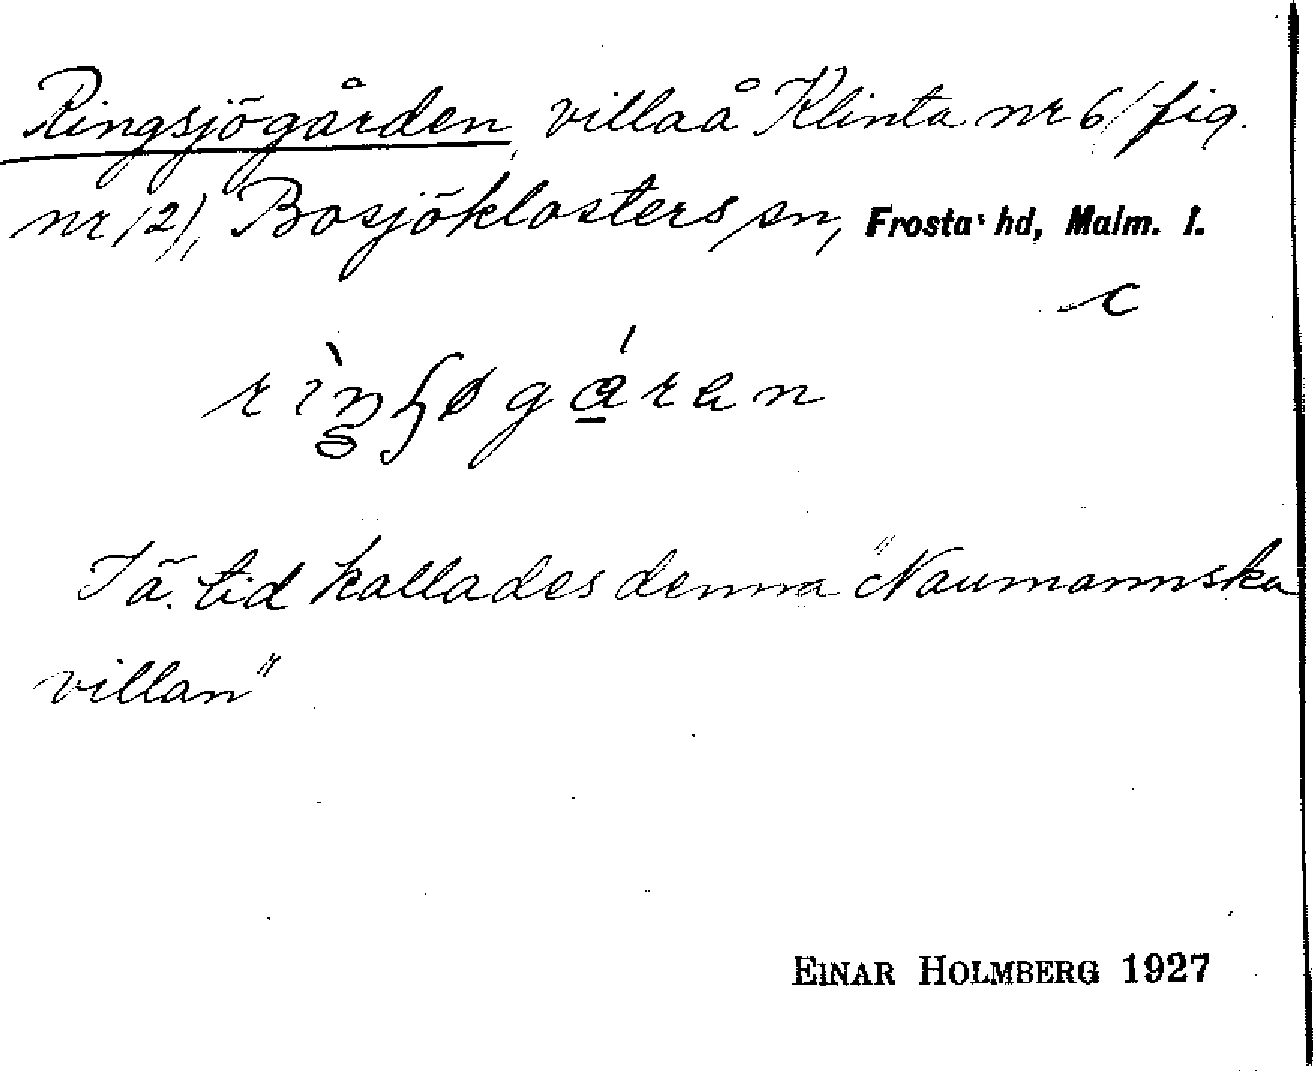 Ringsjögården, villa å Klinta nr 6 (fig.
nr 12), Bosjöklosters sn, Frosta hd, Malm. l.
c
I ä. tid kallades denna "Naumannska
villan"
EINAR HOLMBERG 1927